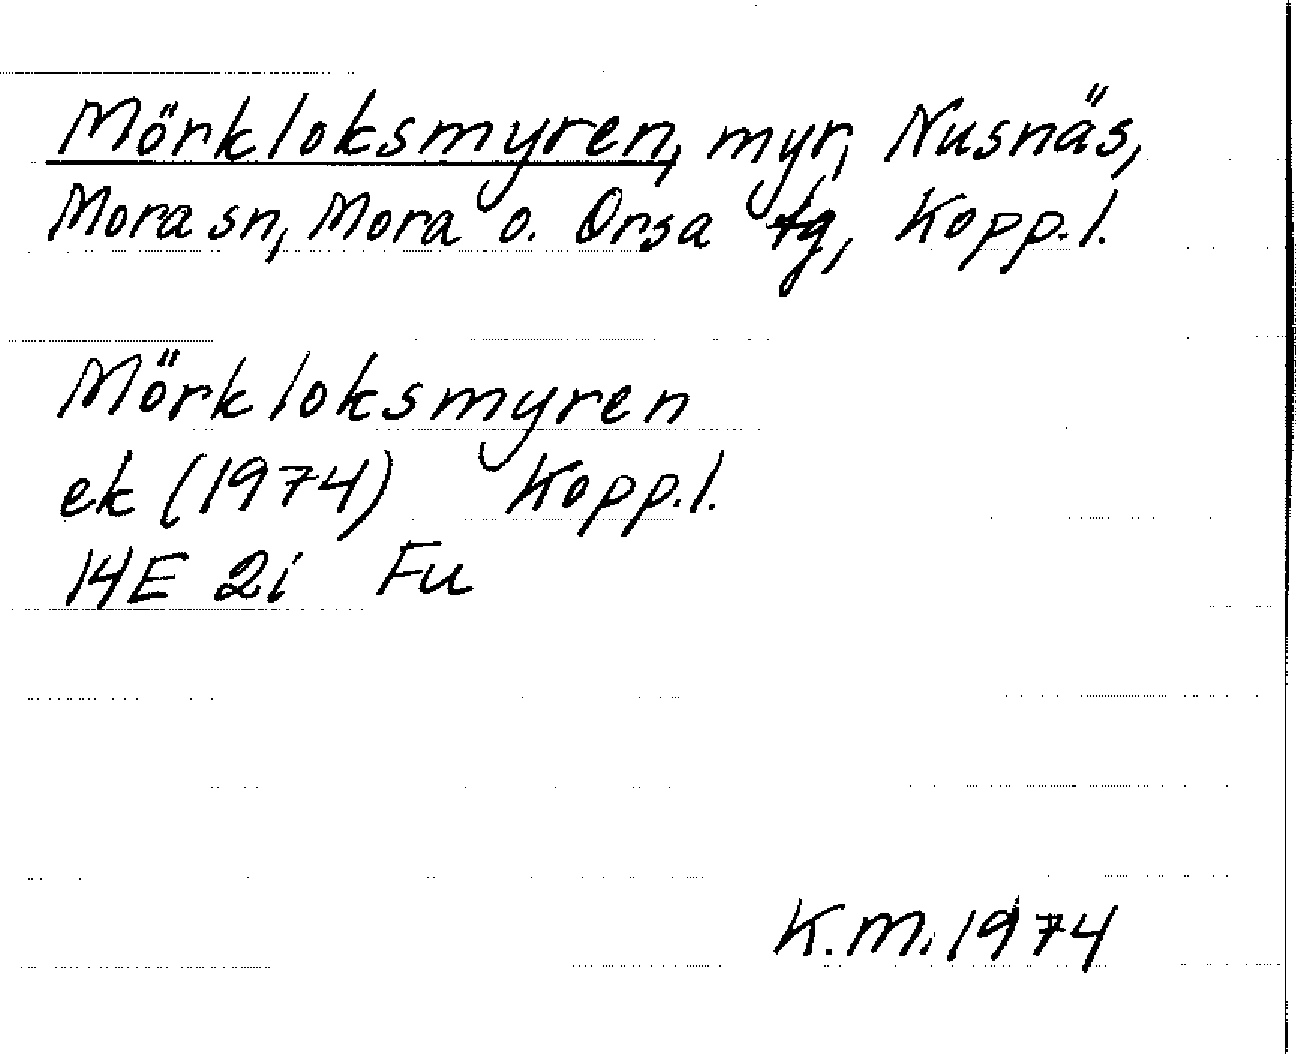 Mörkloksmyren, myr, Nusnäs,
Mora sn, Mora o. Orsa tg, Kopp.l.
Mörkloksmyren
ek (1974) Kopp.l.
14E 2i Fu
K.M. 1974